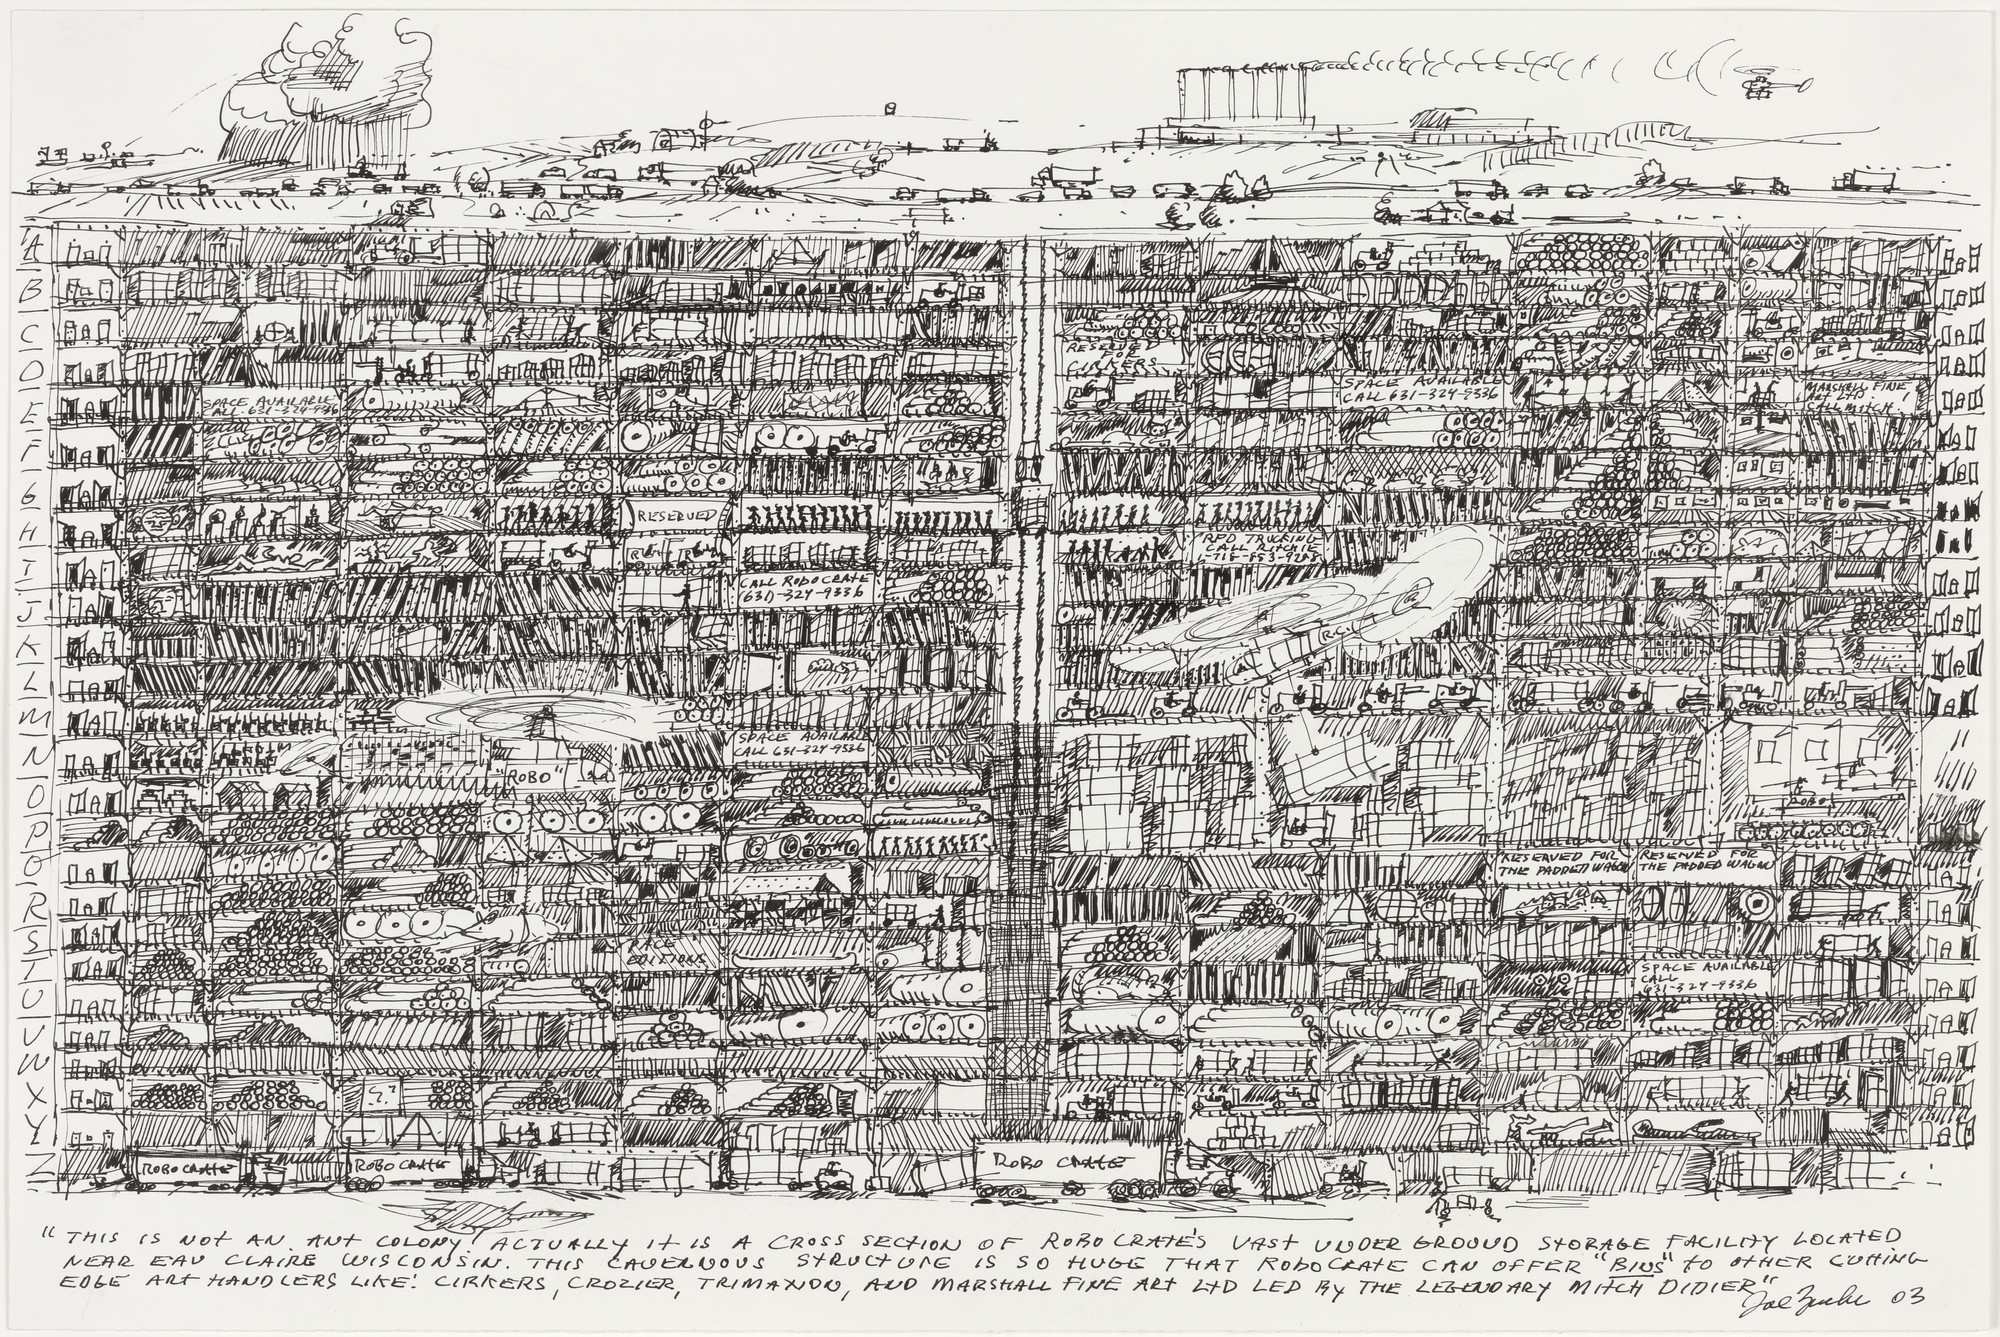 A
B
C
D
RESERVED
FOR
CIRKERS
E
SPACE AVAILABLE
CALL 631-329-9336
SPACE AVAILABLE
CALL 631-329-9336
MARSHALL FINE
ART LTD.
CALL MITCH
F
G
H
RESERVED
I
RPD TRUCKING
CALL RITCHIE
J
CALL ROBO CRATE
(631)-329-9336
K
L
M
N
SPACE AVAILABLE
CALL 631-329-9336
"ROBO"
O
ROBO
P
Q
RESERVED FOR
THE PADDED WAGON
RESERVED FOR
THE PADDED WAGON
R
S
PACE
EDITIONS
T
SPACE AVAILABLE
CALL
631-329-9336
U
V
W
X
Y
Z
ROBO CRATE
ROBO CRATE
ROBO CRATE
"THIS IS NOT AN ANT COLONY! ACTUALLY IT IS A CROSS SECTION OF ROBO CRATE'S VAST UNDER GROUND STORAGE FACILITY LOCATED
NEAR EAU CLAIRE WISCONSIN. THIS CAVERNOUS STRUCTURE IS SO HUGE THAT ROBOCRATE CAN OFFER "BINS" TO OTHER CUTTING
EDGE ART HANDLERS LIKE: CIRKERS, CROZIER, TRIMAXION, AND MARSHALL FINE ART LTD LED BY THE LEGENDARY MITCH DIDIER"
03